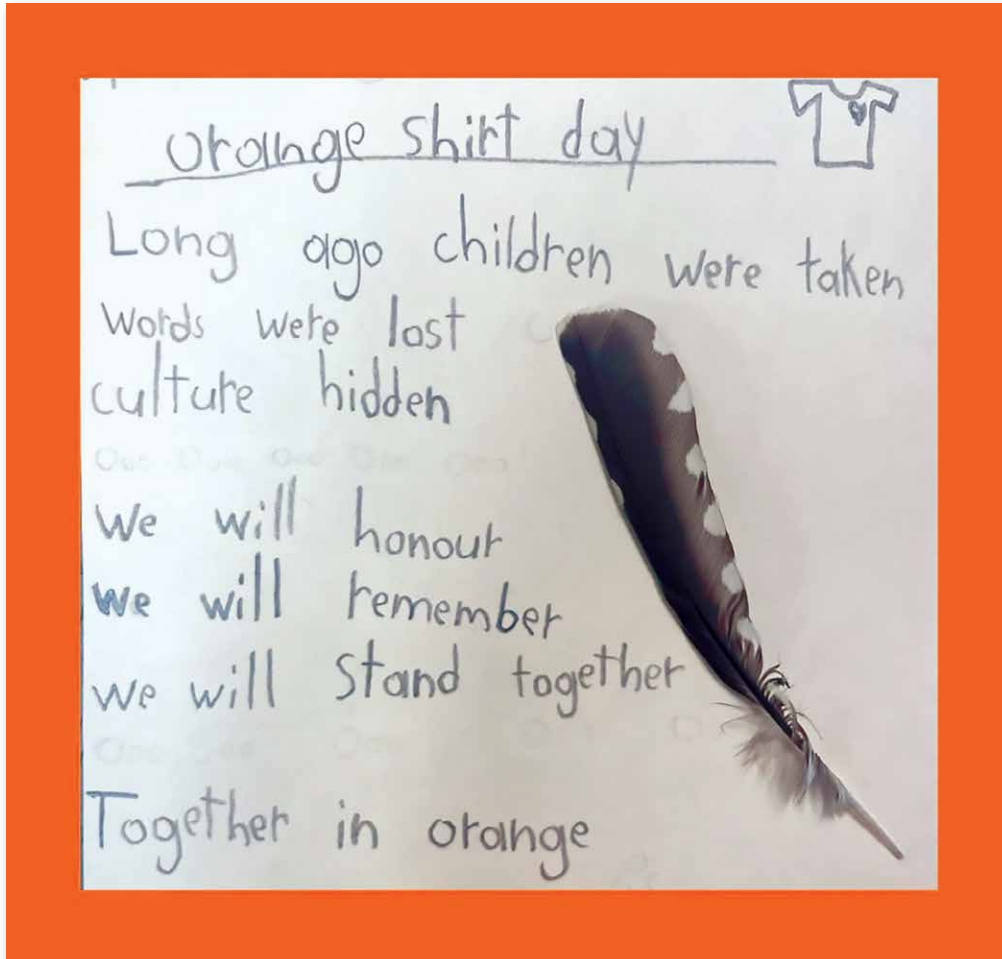 orange shirt day
Long ago children were taken
words were lost
culture hidden
We will honour
we will remember
we will stand together
Together in orange